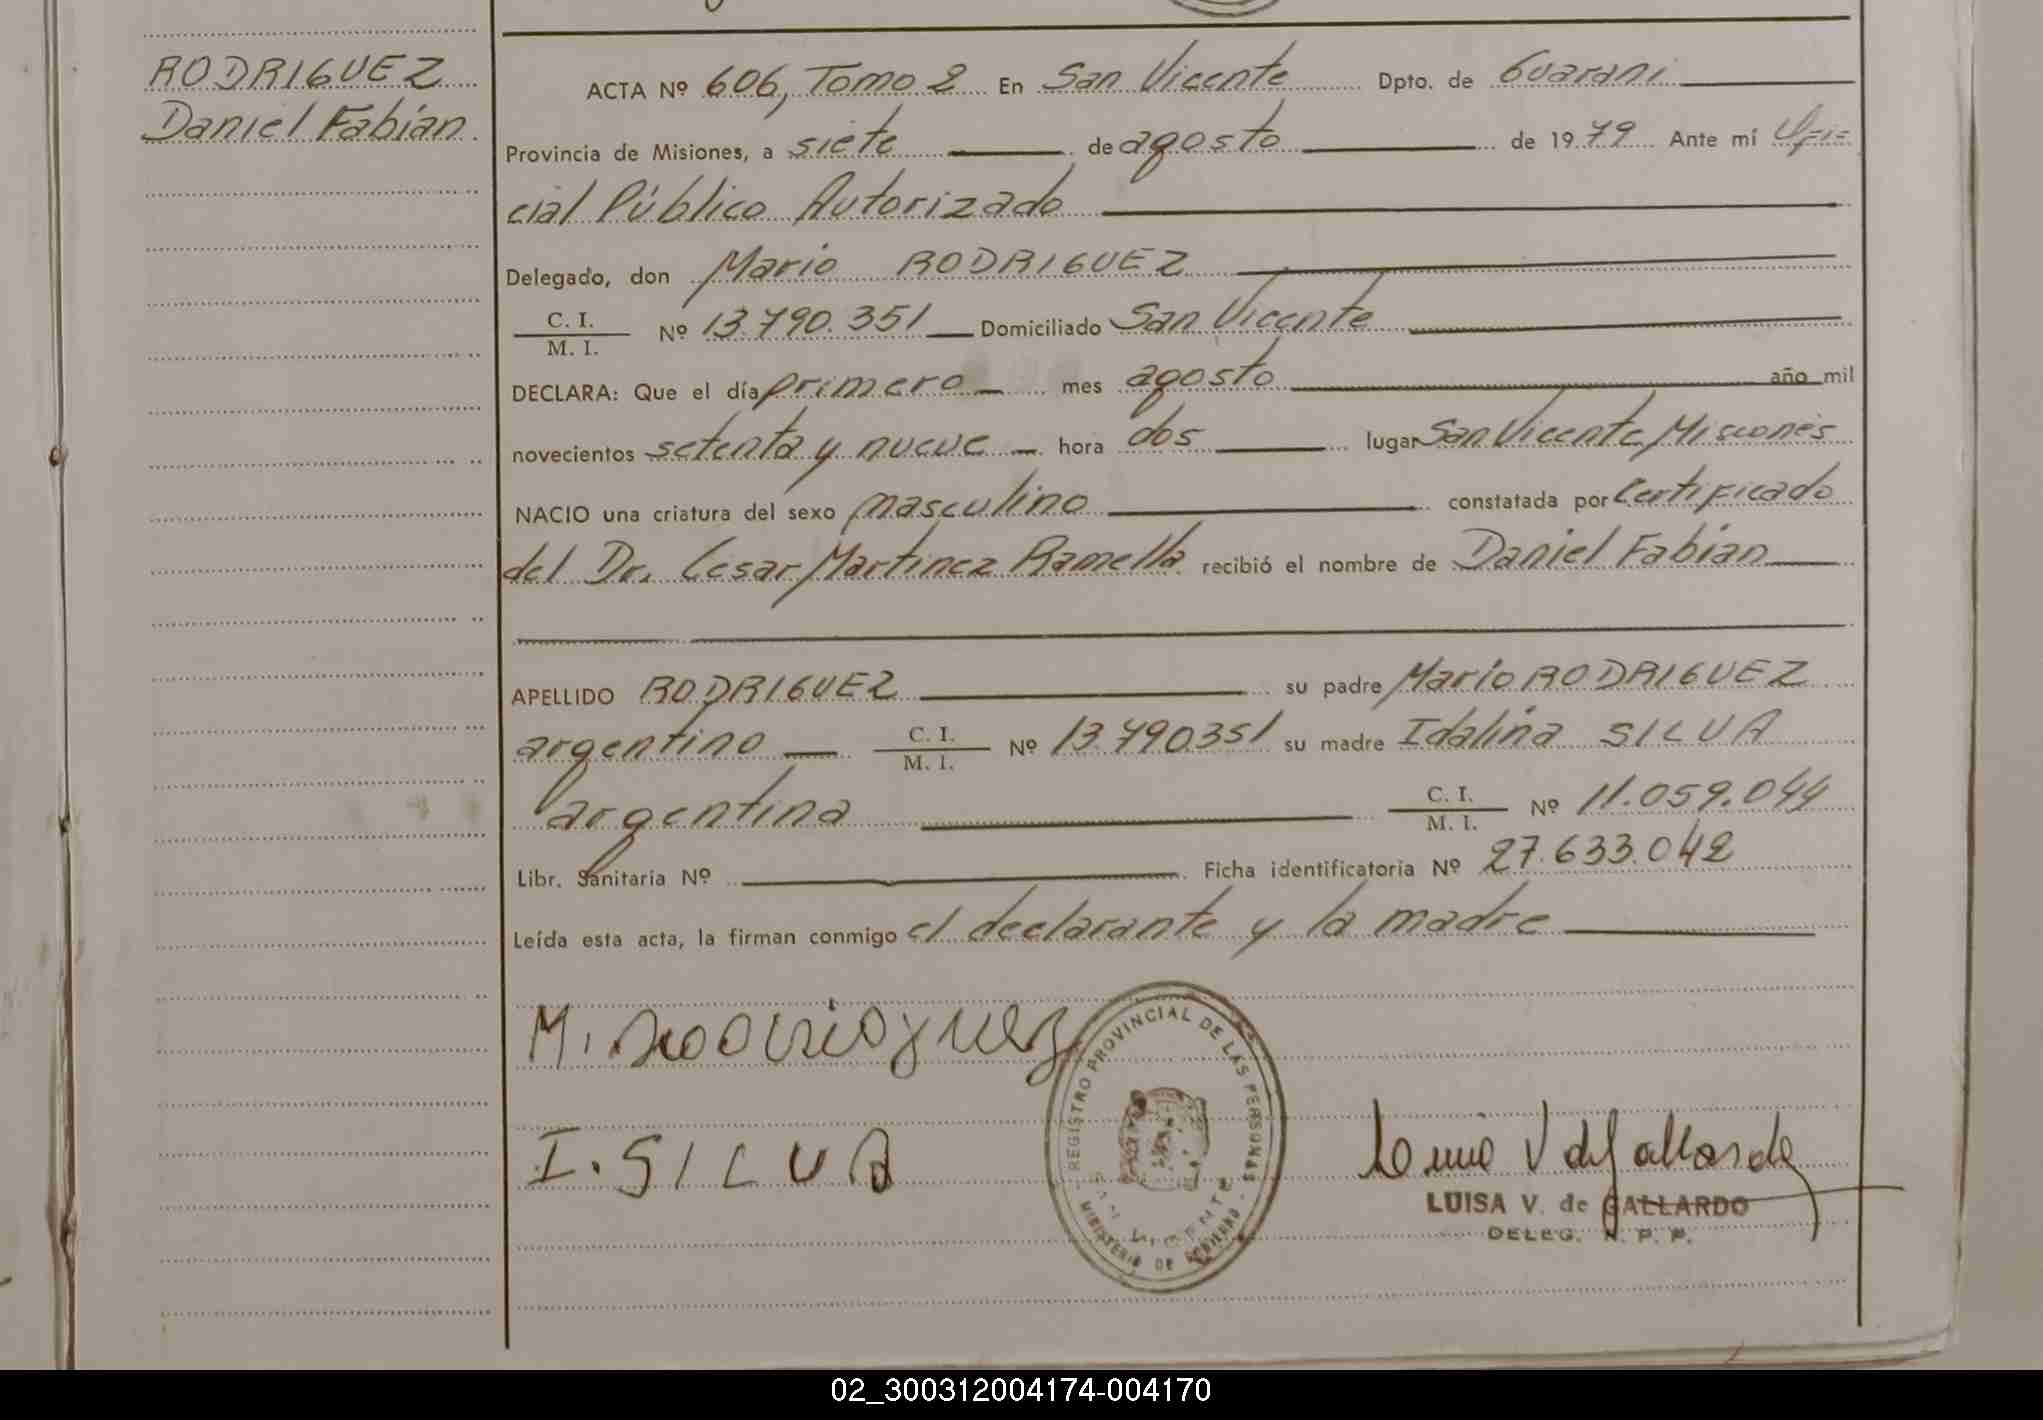 RODRIGUEZ
Daniel Fabián
ACTA Nº 606, Tomo 2 En San Vicente Dpto. de Guaraní
Provincia de Misiones, a siete de agosto de 1979 Ante mí Ofi=
cial Público Autorizado
Delegado, don Mario RODRIGUEZ
C. I.
M. I. Nº 13.790.351 Domiciliado San Vicente
DECLARA: Que el día primero mes agosto año mil
novecientos setenta y nueve hora dos lugar San Vicente, Misiones
NACIO una criatura del sexo masculino constatada por Certificado
del Dr. Cesar Martinez Ramella recibió el nombre de Daniel Fabian
APELLIDO RODRIGUEZ su padre Mario RODRIGUEZ
argentino C. I. M. I. Nº 13.790351 su madre Idalina SILVA
argentina C. I. M. I. Nº 11.059.044
Libr. Sanitaria Nº Ficha identificatoria Nº 27.633.042
Leída esta acta, la firman conmigo el declarante y la madre
I. SILVA
REGISTRO PROVINCIAL DE LAS PERSONAS
SAN VICENTE
MINISTERIO DE GOBIERNO
LUISA V. de GALLARDO
DELEG. R. P. P.
02_300312004174-004170